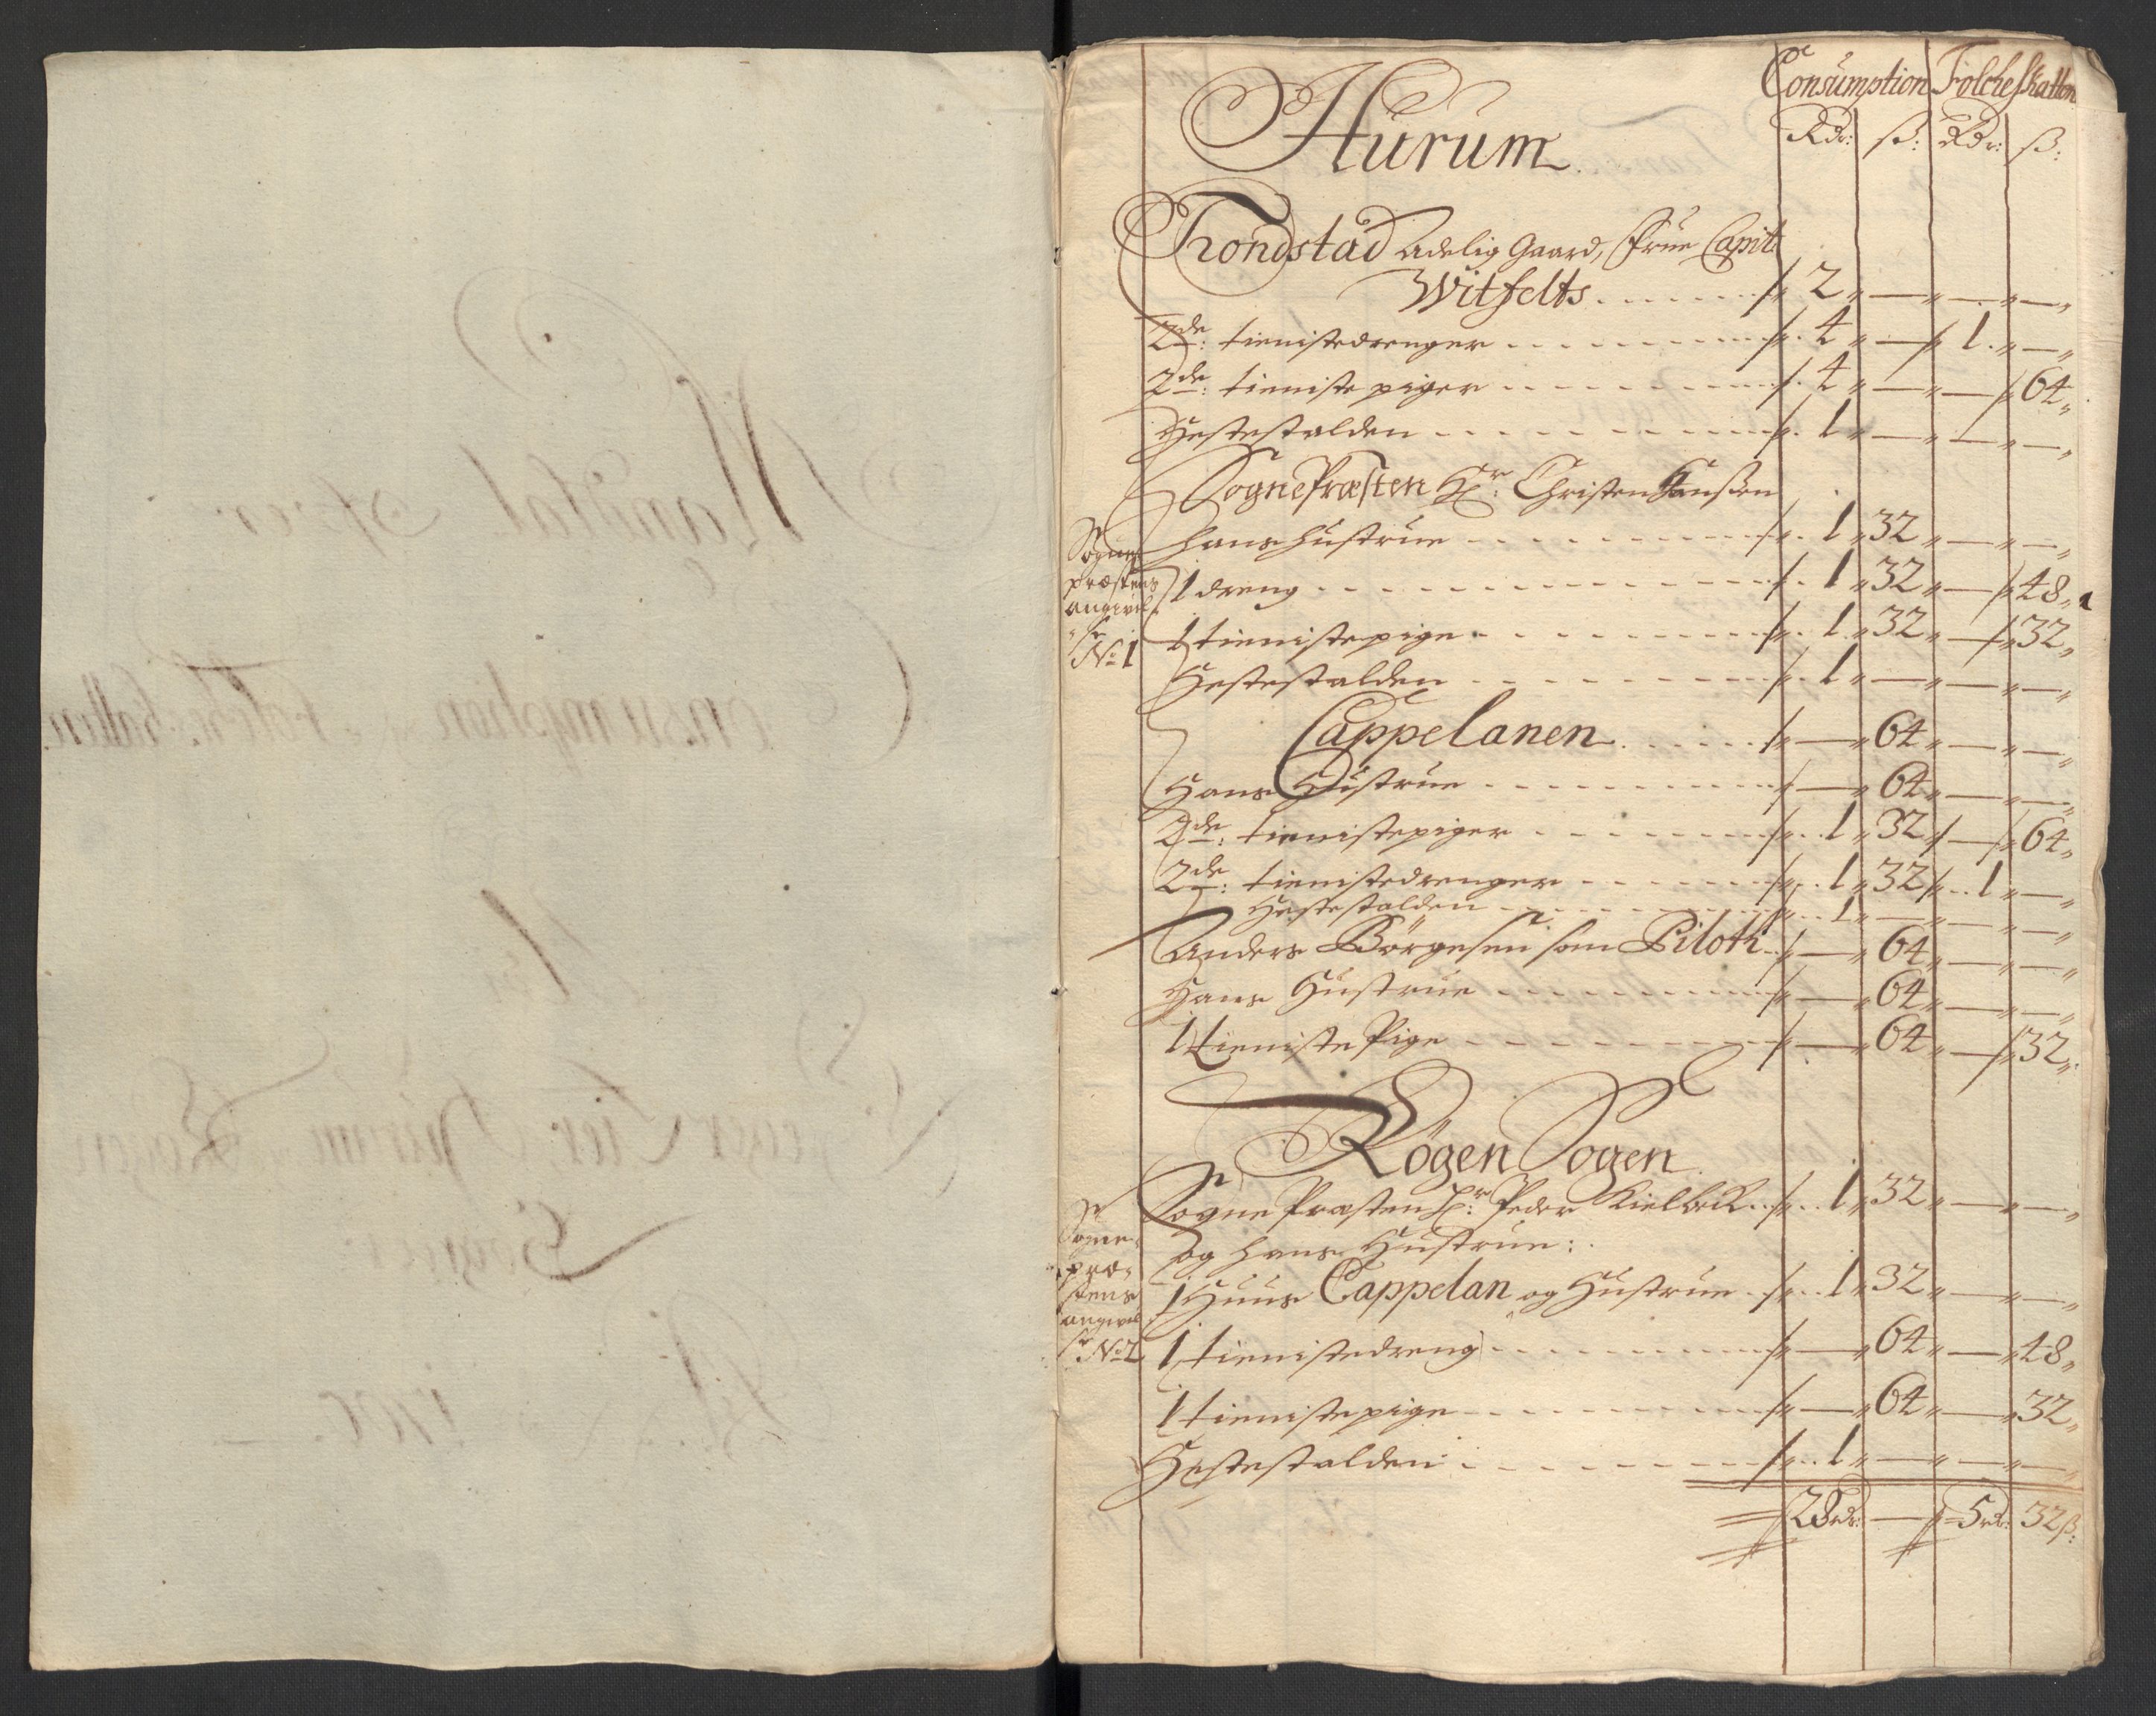 Consumption Folcheskatten
Rdr: ß: Rdr: ß:
Hurum
Trondstad Adelig Gaard, Frue Capit:
Witfelts 2 — — —
2de: tienistedrenger 4 — 1 —
2de: tieniste piger 4 — — 64
Hestestalden 1 — — —
SognePræsten Hr: Christen Hanßen
Sogne
præstens
angivel
se
No 1
hans hustrue 1 32 — —
1 dreng 1 32 — 48
1 tienistepige 1 32 — 32
Hestestalden 1 — — —
Cappelanen — 64 — —
Hans Hustrue — 64 — —
2de: tienistepiger 1 32 — 64
2de: tienistedrenger 1 32 1 —
Hestestalden 1 — — —
Anders Börgesen som Piloth — 64 — —
Hans Hustrue — 64 — —
1 tieniste Pige — 64 — 32
Rögen Sogen
Sogne Præsten Hr: Peder Kielbeck 1 32 — —
og hans Hustrue:
Sogne
præ
stens
angivel
se No 2
1 Huus Cappelan og Hustrue 1 32 — —
1 tienistedreng — 64 — 48
1 tienistepige — 64 — 32
Hestestalden 1 — — —
28rdr: — 5rdr: 32ß: